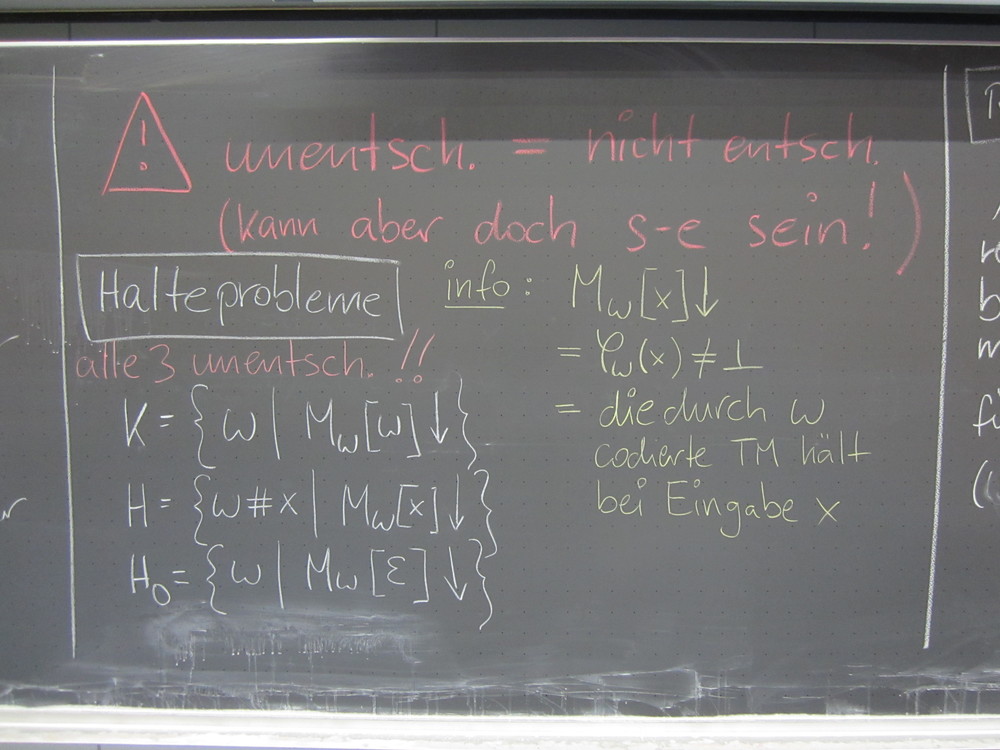 ! unentsch. = nicht entsch.
(kann aber doch s-e sein!)
Halteprobleme
alle 3 unentsch. !!
K = { w | M_w[w]↓ }
H = { w#x | M_w[x]↓ }
H_0 = { w | M_w[ε]↓ }
info: M_w[x]↓
= φ_w(x) ≠ ⊥
= die durch w
codierte TM hält
bei Eingabe x